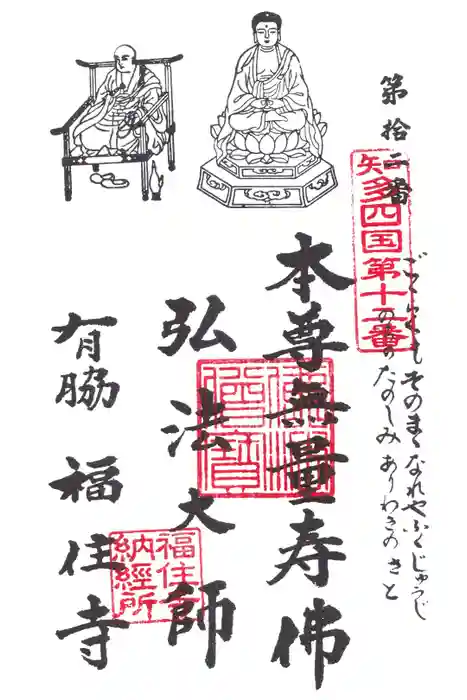 第拾二番
知多四国第十二番
ごくらくも そのまゝなれや ふくじゅうじ
のりのたのしみ ありわきのさと
本尊無量寿佛
佛法僧寶
弘法大師
有脇 福住寺
福住寺
納経所